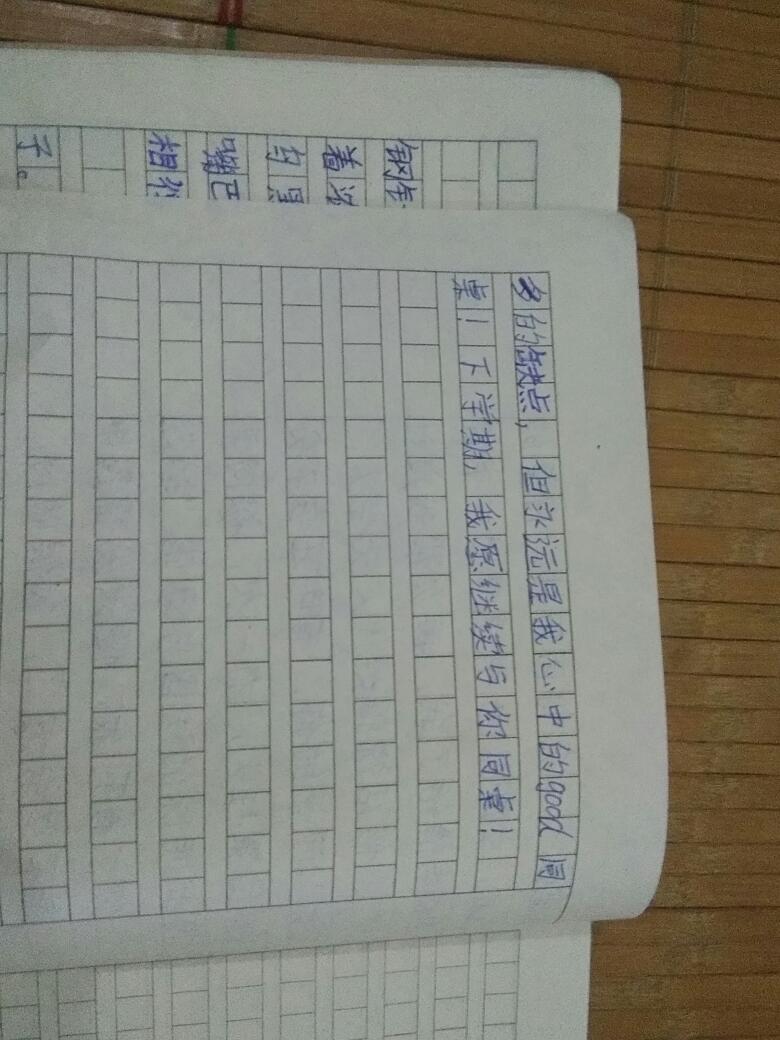 钢
着
嘴巴
相
子。
多的缺点，但永远是我心中的good同
桌！下学期，我愿继续与你同桌！